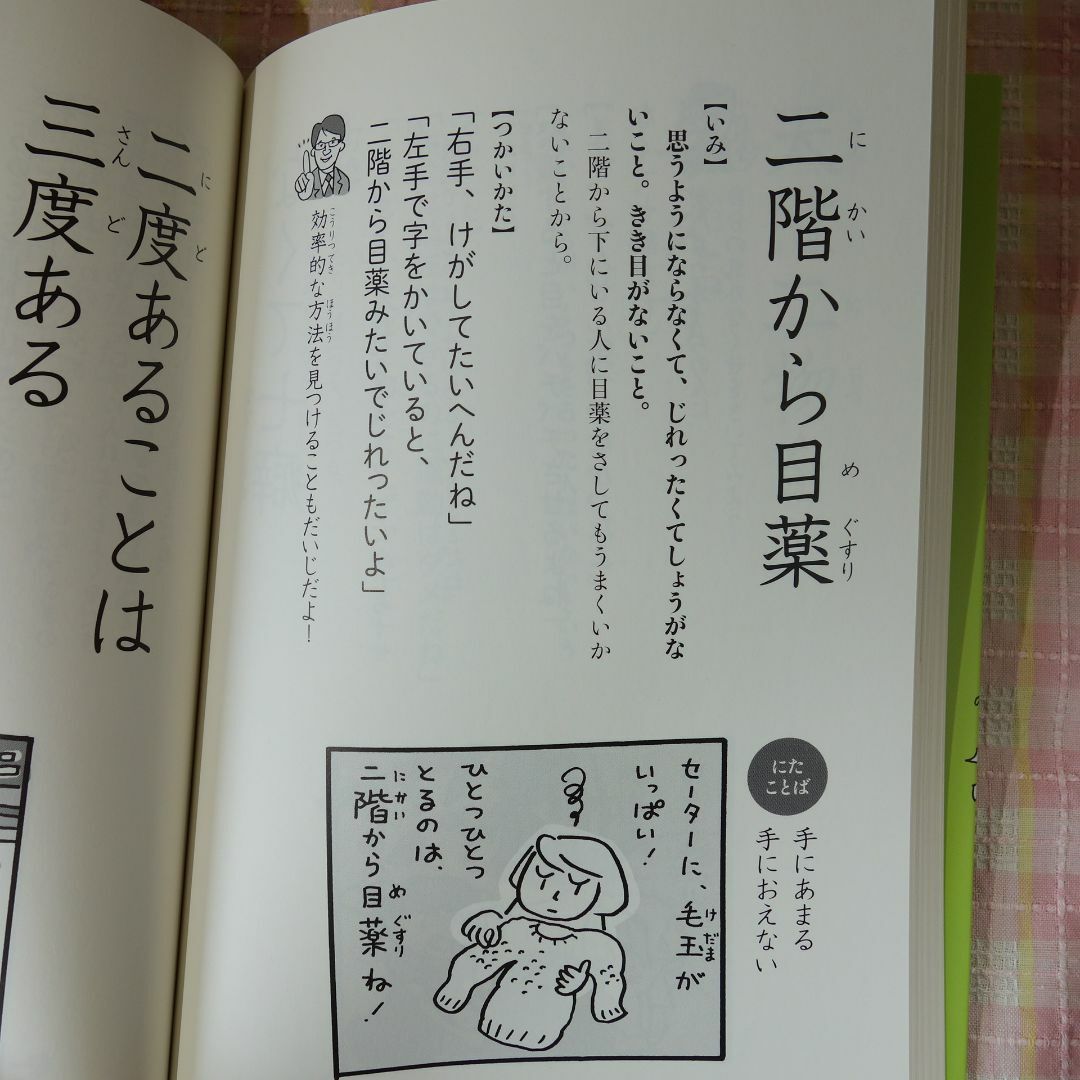 二階から目薬
にかい
めぐすり
【いみ】
思うようにならなくて、じれったくてしょうがな
いこと。きき目がないこと。
二階から下にいる人に目薬をさしてもうまくいか
ないことから。
【つかいかた】
「右手、けがしてたいへんだね」
「左手で字をかいていると、
二階から目薬みたいでじれったいよ」
効率的な方法を見つけることもだいじだよ!
こうりつてき
ほうほう
にた
ことば
手にあまる
手におえない
セーターに、毛玉が
けだま
いっぱい!
ひとつひとつ
とるのは、
二階から目薬ね!
にかい
めぐすり
二度あることは
にど
三度ある
さんど